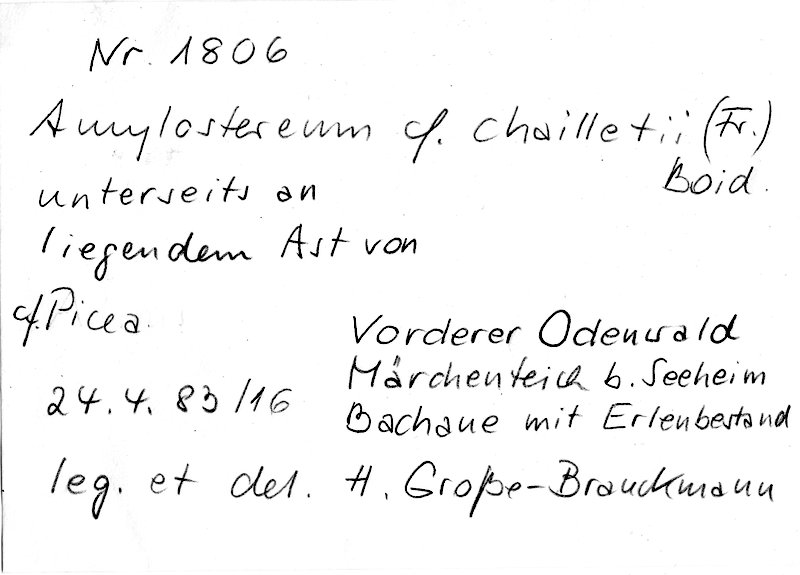 Nr. 1806
Amylostereum cf. chailletii (Fr.)
Boid.
unterseits an
liegendem Ast von
cf. Picea
Vorderer Odenwald
Märchenteich b. Seeheim
24.4.83/16
Bachaue mit Erlenbestand
leg. et det. H. Große-Brauckmann